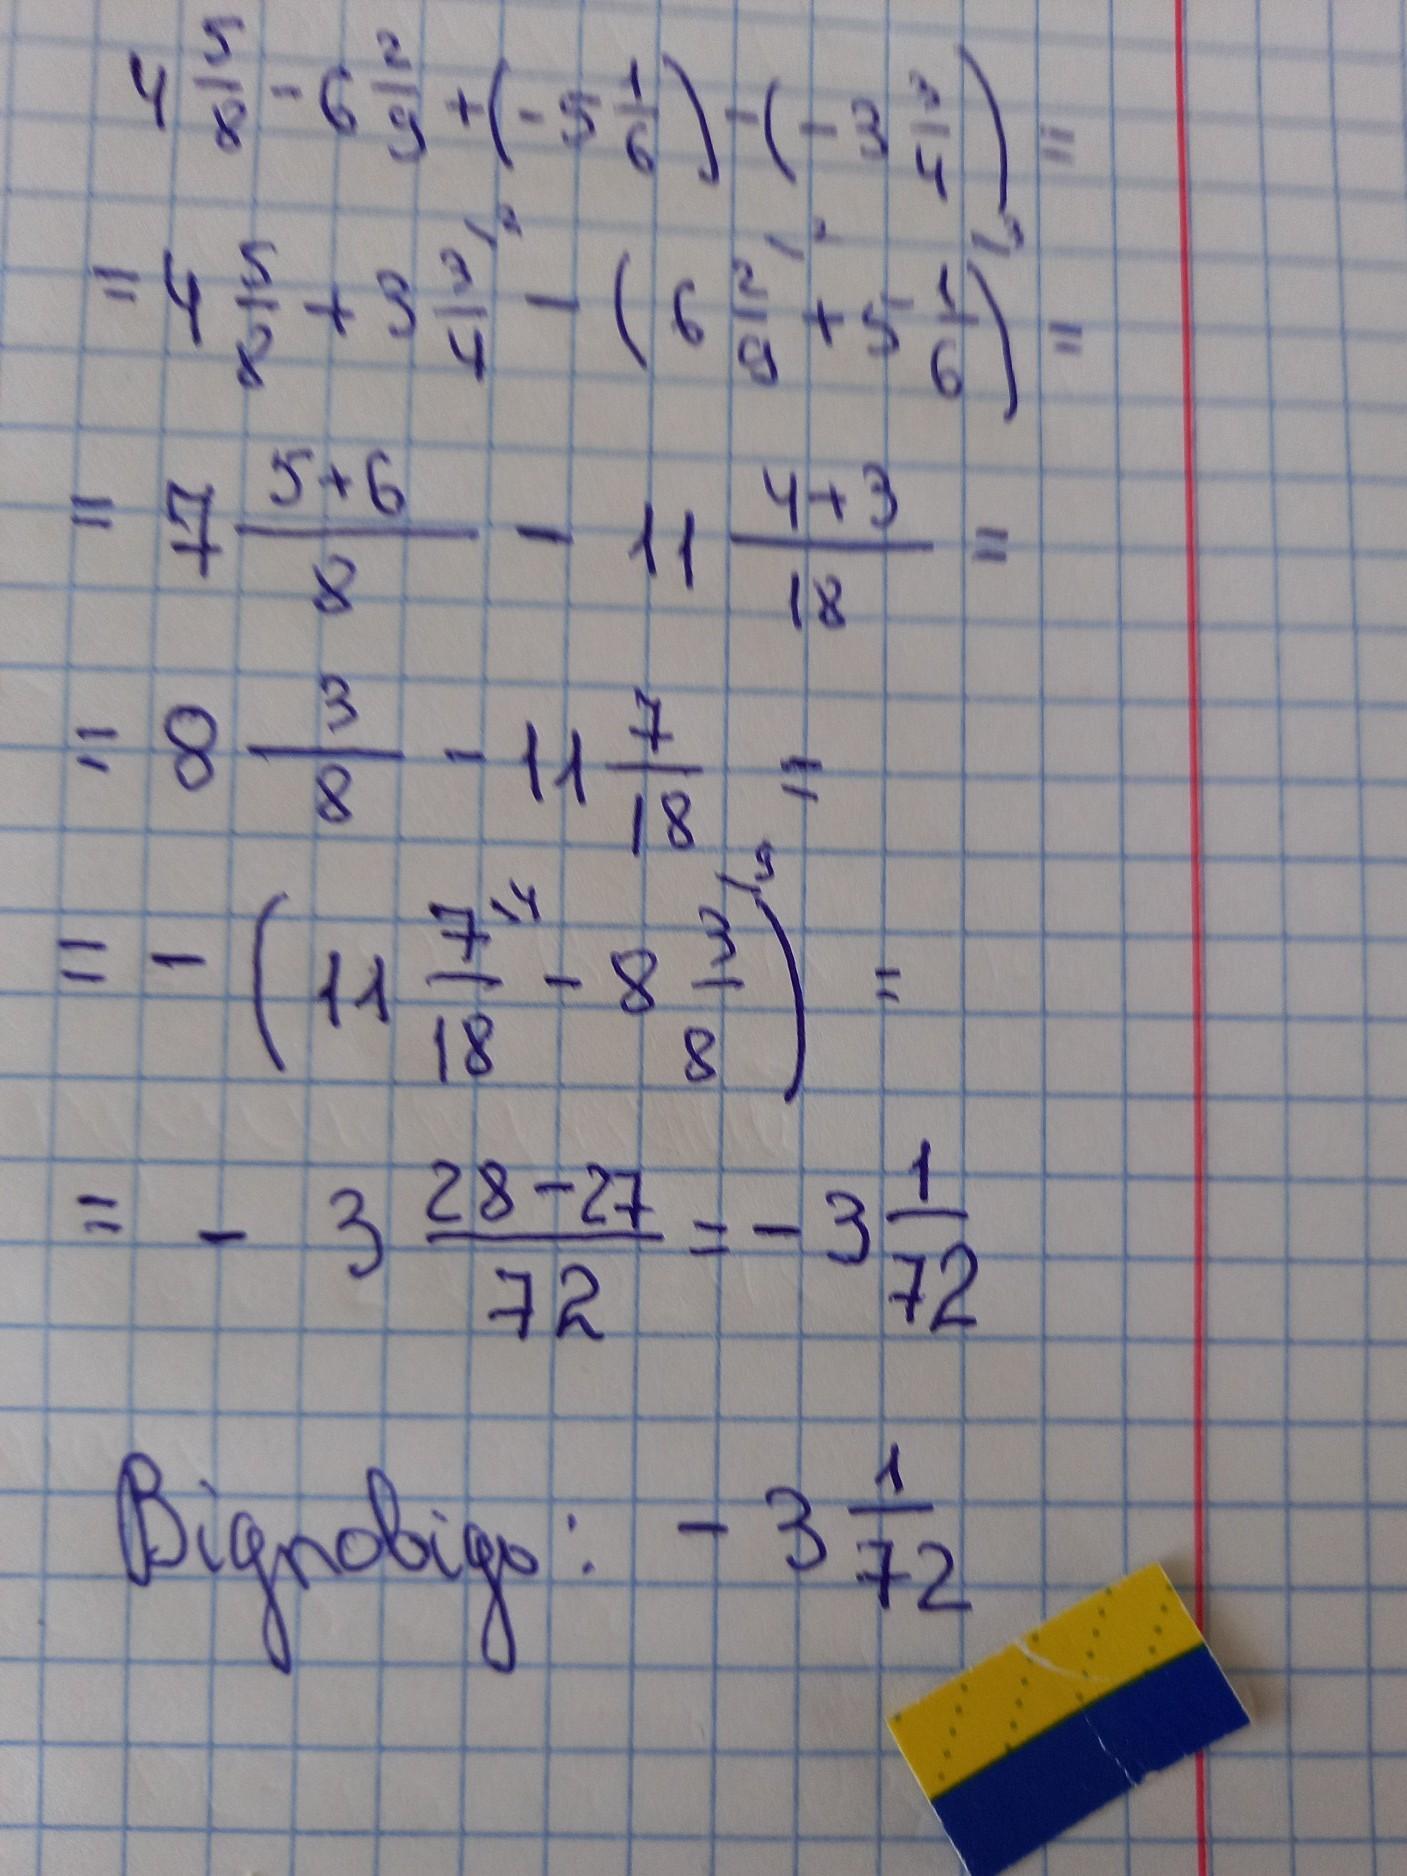 4 5/8 - 6 2/9 + (- 5 1/6) - (- 3 3/4) =
= 4 5/8 + 3 3/4 \2 - (6 2/9 \2 + 5 1/6 \3) =
= 7 5+6/8 - 11 4+3/18 =
= 8 3/8 - 11 7/18 =
= - (11 7/18 \4 - 8 3/8 \9) =
= - 3 28-27/72 = - 3 1/72
Відповідь: - 3 1/72